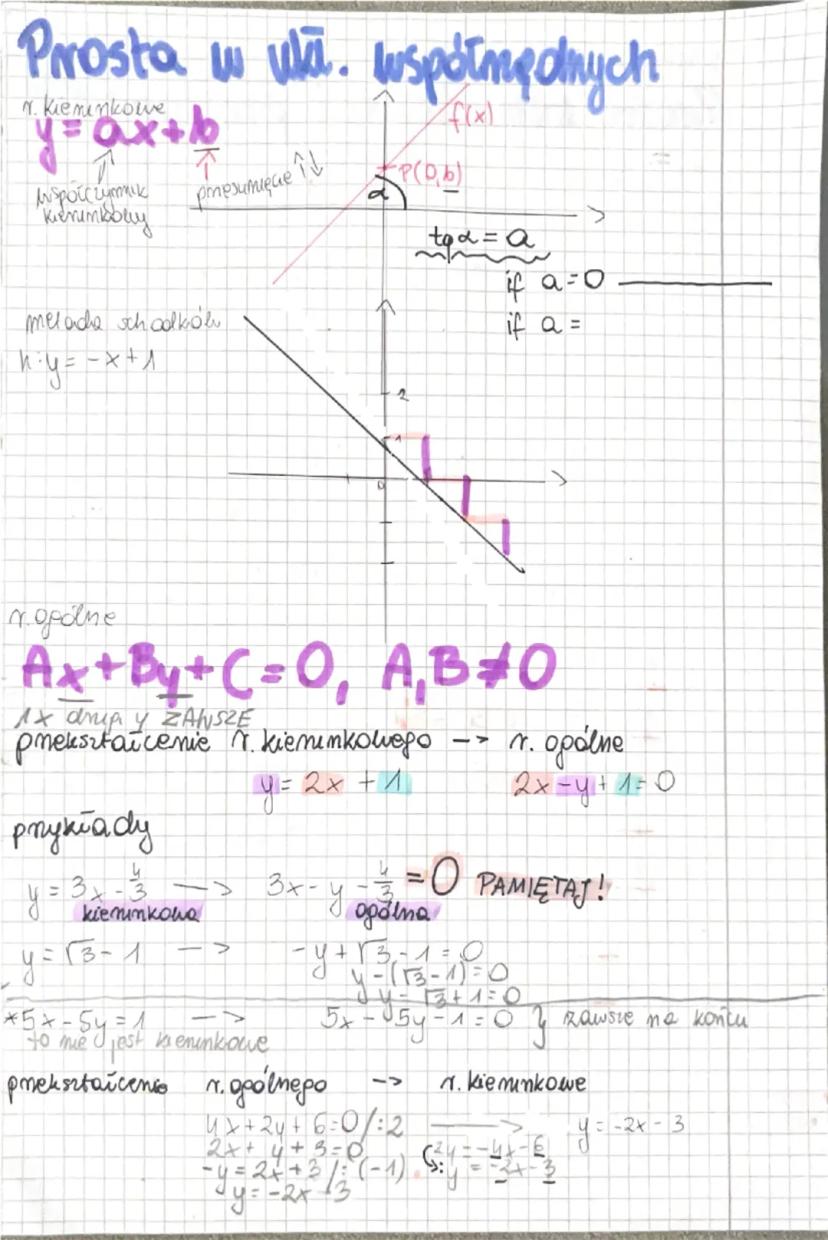 Prosta w ukł. współrzędnych
r. kierunkowe
y = ax + b
współczynnik kierunkowy
przesunięcie ↑↓
f(x)
P(0,b)
α
tgα = a
if a = 0
if a =
metoda schodków
k: y = -x + 1
2
1
0
r. ogólne
Ax + By + C = 0, A,B ≠ 0
1x drugi y ZAWSZE
przekształcenie r. kierunkowego -> r. ogólne
y = 2x + 1 2x - y + 1 = 0
przykłady
y = 3x - 4/3 -> 3x - y - 4/3 = 0 PAMIĘTAJ!
kierunkowa ogólna
y = √3 - 1 -> -y + √3 - 1 = 0
y - (√3 - 1) = 0
y - √3 + 1 = 0
*5x - 5y = 1 -> 5x - 5y - 1 = 0 } zawsze na końcu
to nie jest kierunkowe
przekształcenie r. ogólnego -> r. kierunkowe
4x + 2y + 6 = 0 /:2 -> y = -2x - 3
2x + y + 3 = 0 2y = -4x - 6
-y = 2x + 3 /: (-1) y = -2x - 3
y = -2x - 3